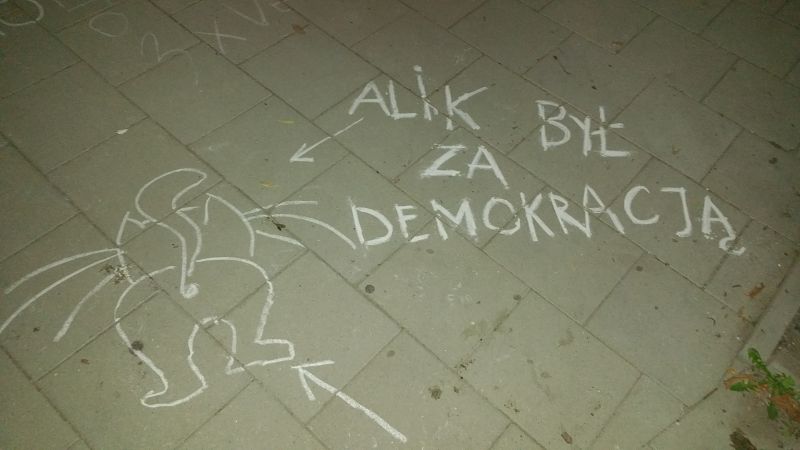 ALiK BYŁ
ZA
DEMOKRACJĄ